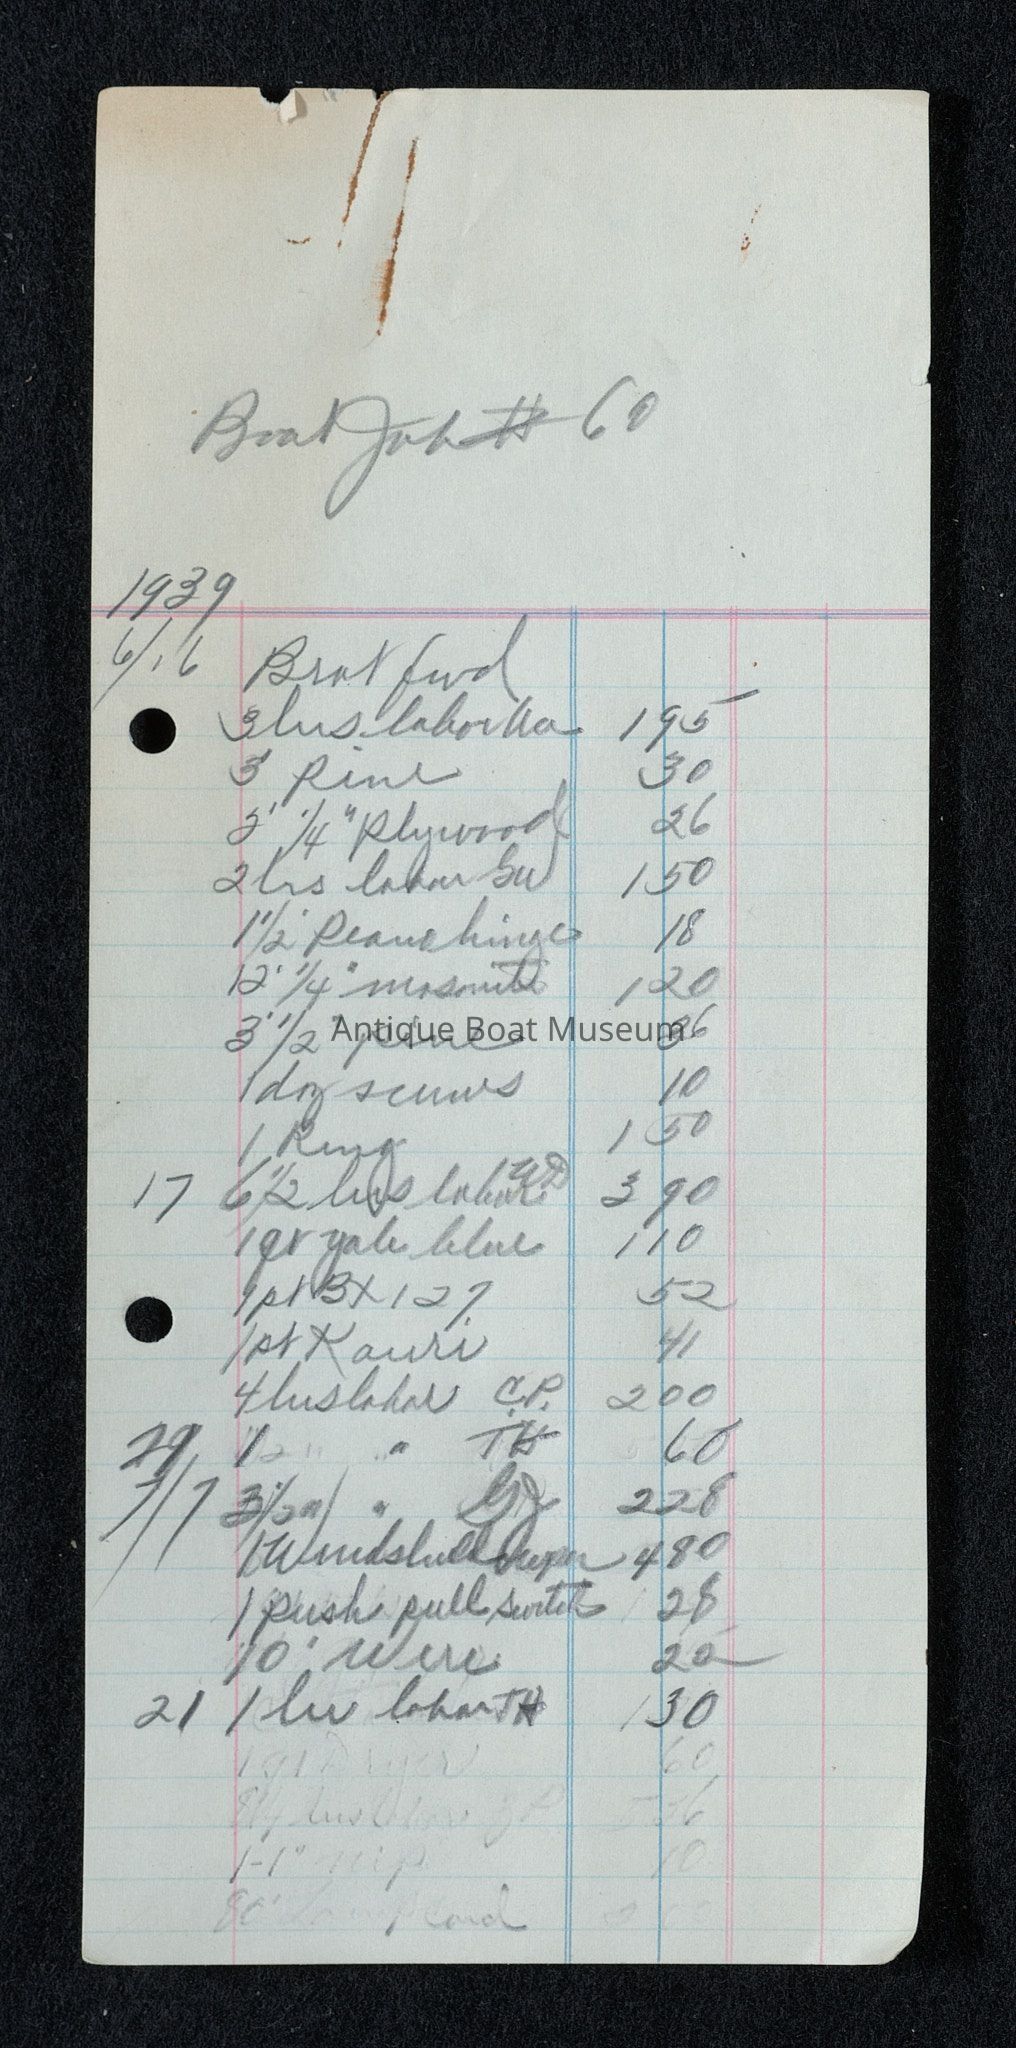 Boat Job # 60
1939
6/16 Brot fwd
3 hrs labor 195
3' Pine 30
2' 1/4" plywood 26
2 hrs labor 150
1 1/2' Peano hinge 18
12' 1/4" masonite 120
3' 1/2" pine 36
Antique Boat Museum
1 doz screws 10
1 Ring 150
17 6 1/2 hrs labor 390
1 qt yale blue 110
1 pt BX 127 52
1 pt Kauri 41
4 hrs labor C.P. 200
29 1 " " TH 60
7/7 3 1/2 " " 228
1 Windshield wiper 480
1 push pull switch 28
10' Wire 20
21 1 hr labor TH 130
1 qt Dryer 60
hrs labor
1-1" nip 10
80' Lamp cord